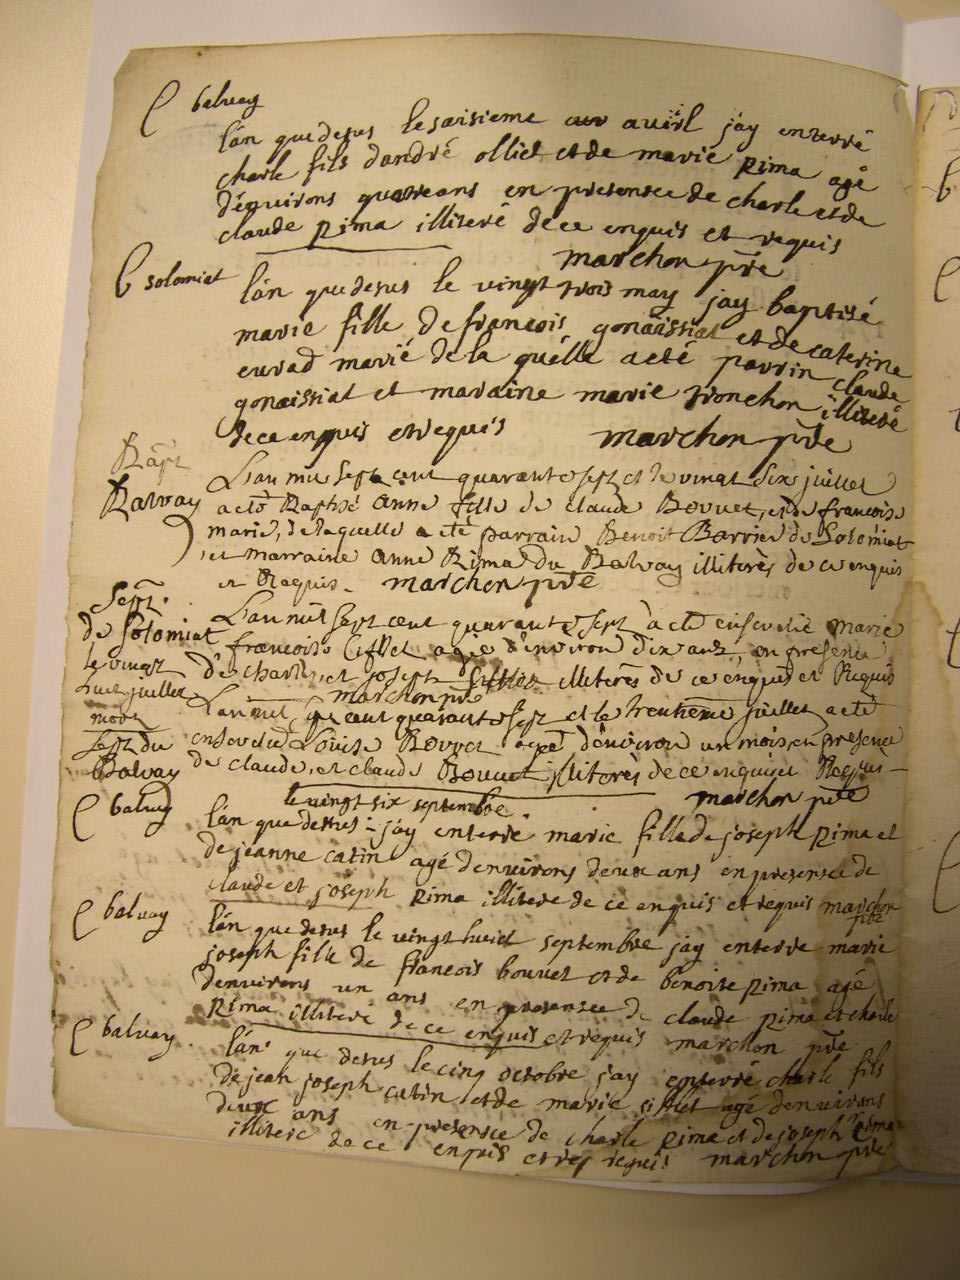 balvay
lán que desus le saisieme avvril jay enterré
charle fils dandré olliet et de marie rima agé
déquirons quatre ans en presensce de charle et de
claude rima illiteré de ce enquis et requis
marchon ptre
solomiat
lán que desus le vingt trois may jay baptisé
marie fille de francois gonaissiat et de caterine
eurad marié de la quélle a eté parrin claude
gonaissiat et maraine marie tronchon illiteré
de ce enquis et requis marchon ptre
Bapt
Balvay
L'an mil sept cent quarante sept et le vingt six juillet
a eté Baptisé anne fille de claude Bovuet, et de francoise
marie, de laquelle a eté parrain Benoit Barrier de Solomiat
et marraine anne Rima du Balvay illiterès de ce enquis
et Requis. marchon ptre
Sept.
de Solomiat
le vingt
huit juillet
L'an mil sept cent quarante sept à eté enseveli marie
francoise Cifflet agée d'environ dix ans, en presence
de charle, et joseph Sifflet illiterès de ce enquis et Requis
marchon ptre
mort
Sept du
Balvay
L'an mil sept cent quarante sept et le trentième juillet a eté
ensevelie Louise Bovvet agée d'environ un mois, en presence
de claude, et claude Bouvet illiterès de ce enquis et Requis
marchon ptre
balvay
le vingt six septembre.
lán que desus jay enterré marie fille de joseph rima et
de jeanne catin agé denvirons deux ans en presensce de
claude et joseph rima illiteré de ce enquis et requis marchon
ptre
balvay
lán que desus le vingt huict septembre jay enterre marie
joseph fille de francois bouvet et de benoite rima agé
denvirons un ans en presensce de claude rima et charle
rima illiteré de ce enquis et requis marchon ptre
balvay.
lán que desus le cinq octobre jay enterré charle fils
de jean joseph catin et de marie sifflet agé denvirons
deux ans en presensce de charle rima et de joseph rima
illiteré de ce enquis et requis marchon ptre